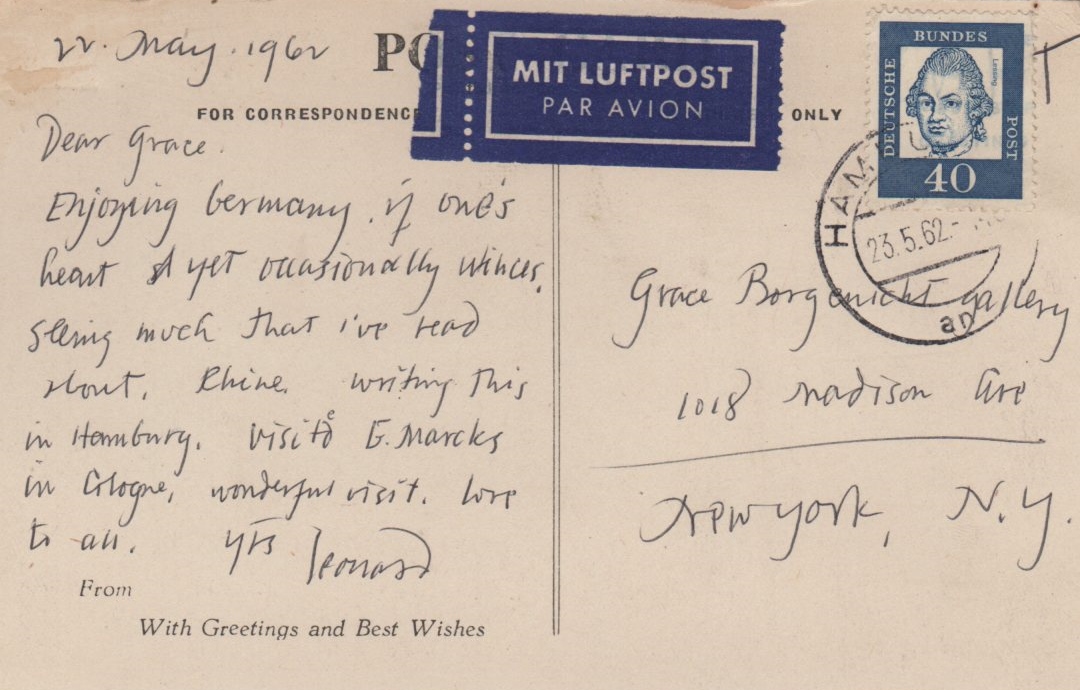 22. May. 1962
PO
MIT LUFTPOST
PAR AVION
FOR CORRESPONDENCE
ONLY
BUNDES
DEUTSCHE
POST
Lessing
40
HAM
23.5.62.-
an
Dear Grace.
Enjoying Germany, if one's
heart yet occasionally winces.
Seeing much that i've read
about. Rhine. writing this
in Hamburg. visitd e G. Marcks
in Cologne, wonderful visit. love
to all. yrs Leonard
Grace Borgenicht gallery
1018 Madison Ave
New York, N.Y.
From
With Greetings and Best Wishes